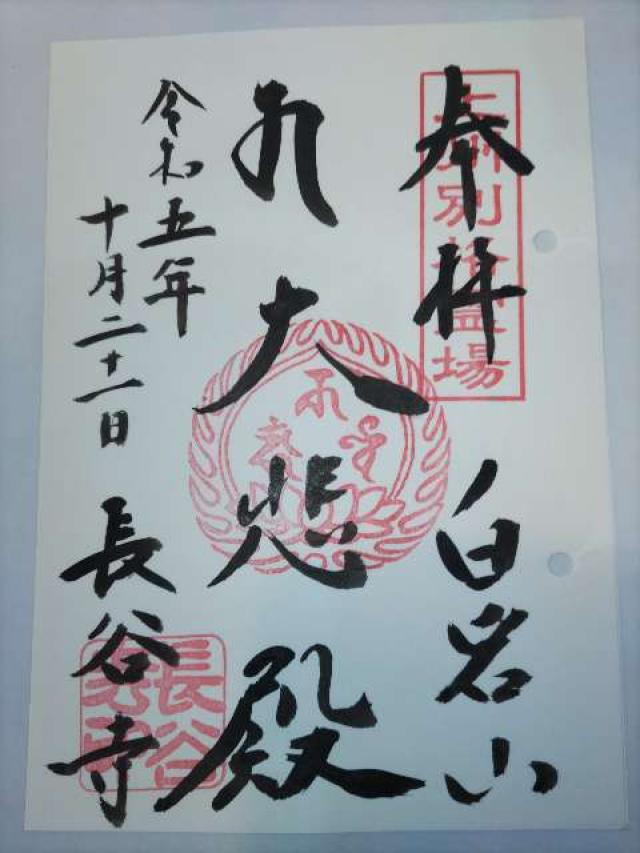 奉拝 白岩山
上州別格霊場
大悲殿
令和五年
十月二十一日
長谷寺